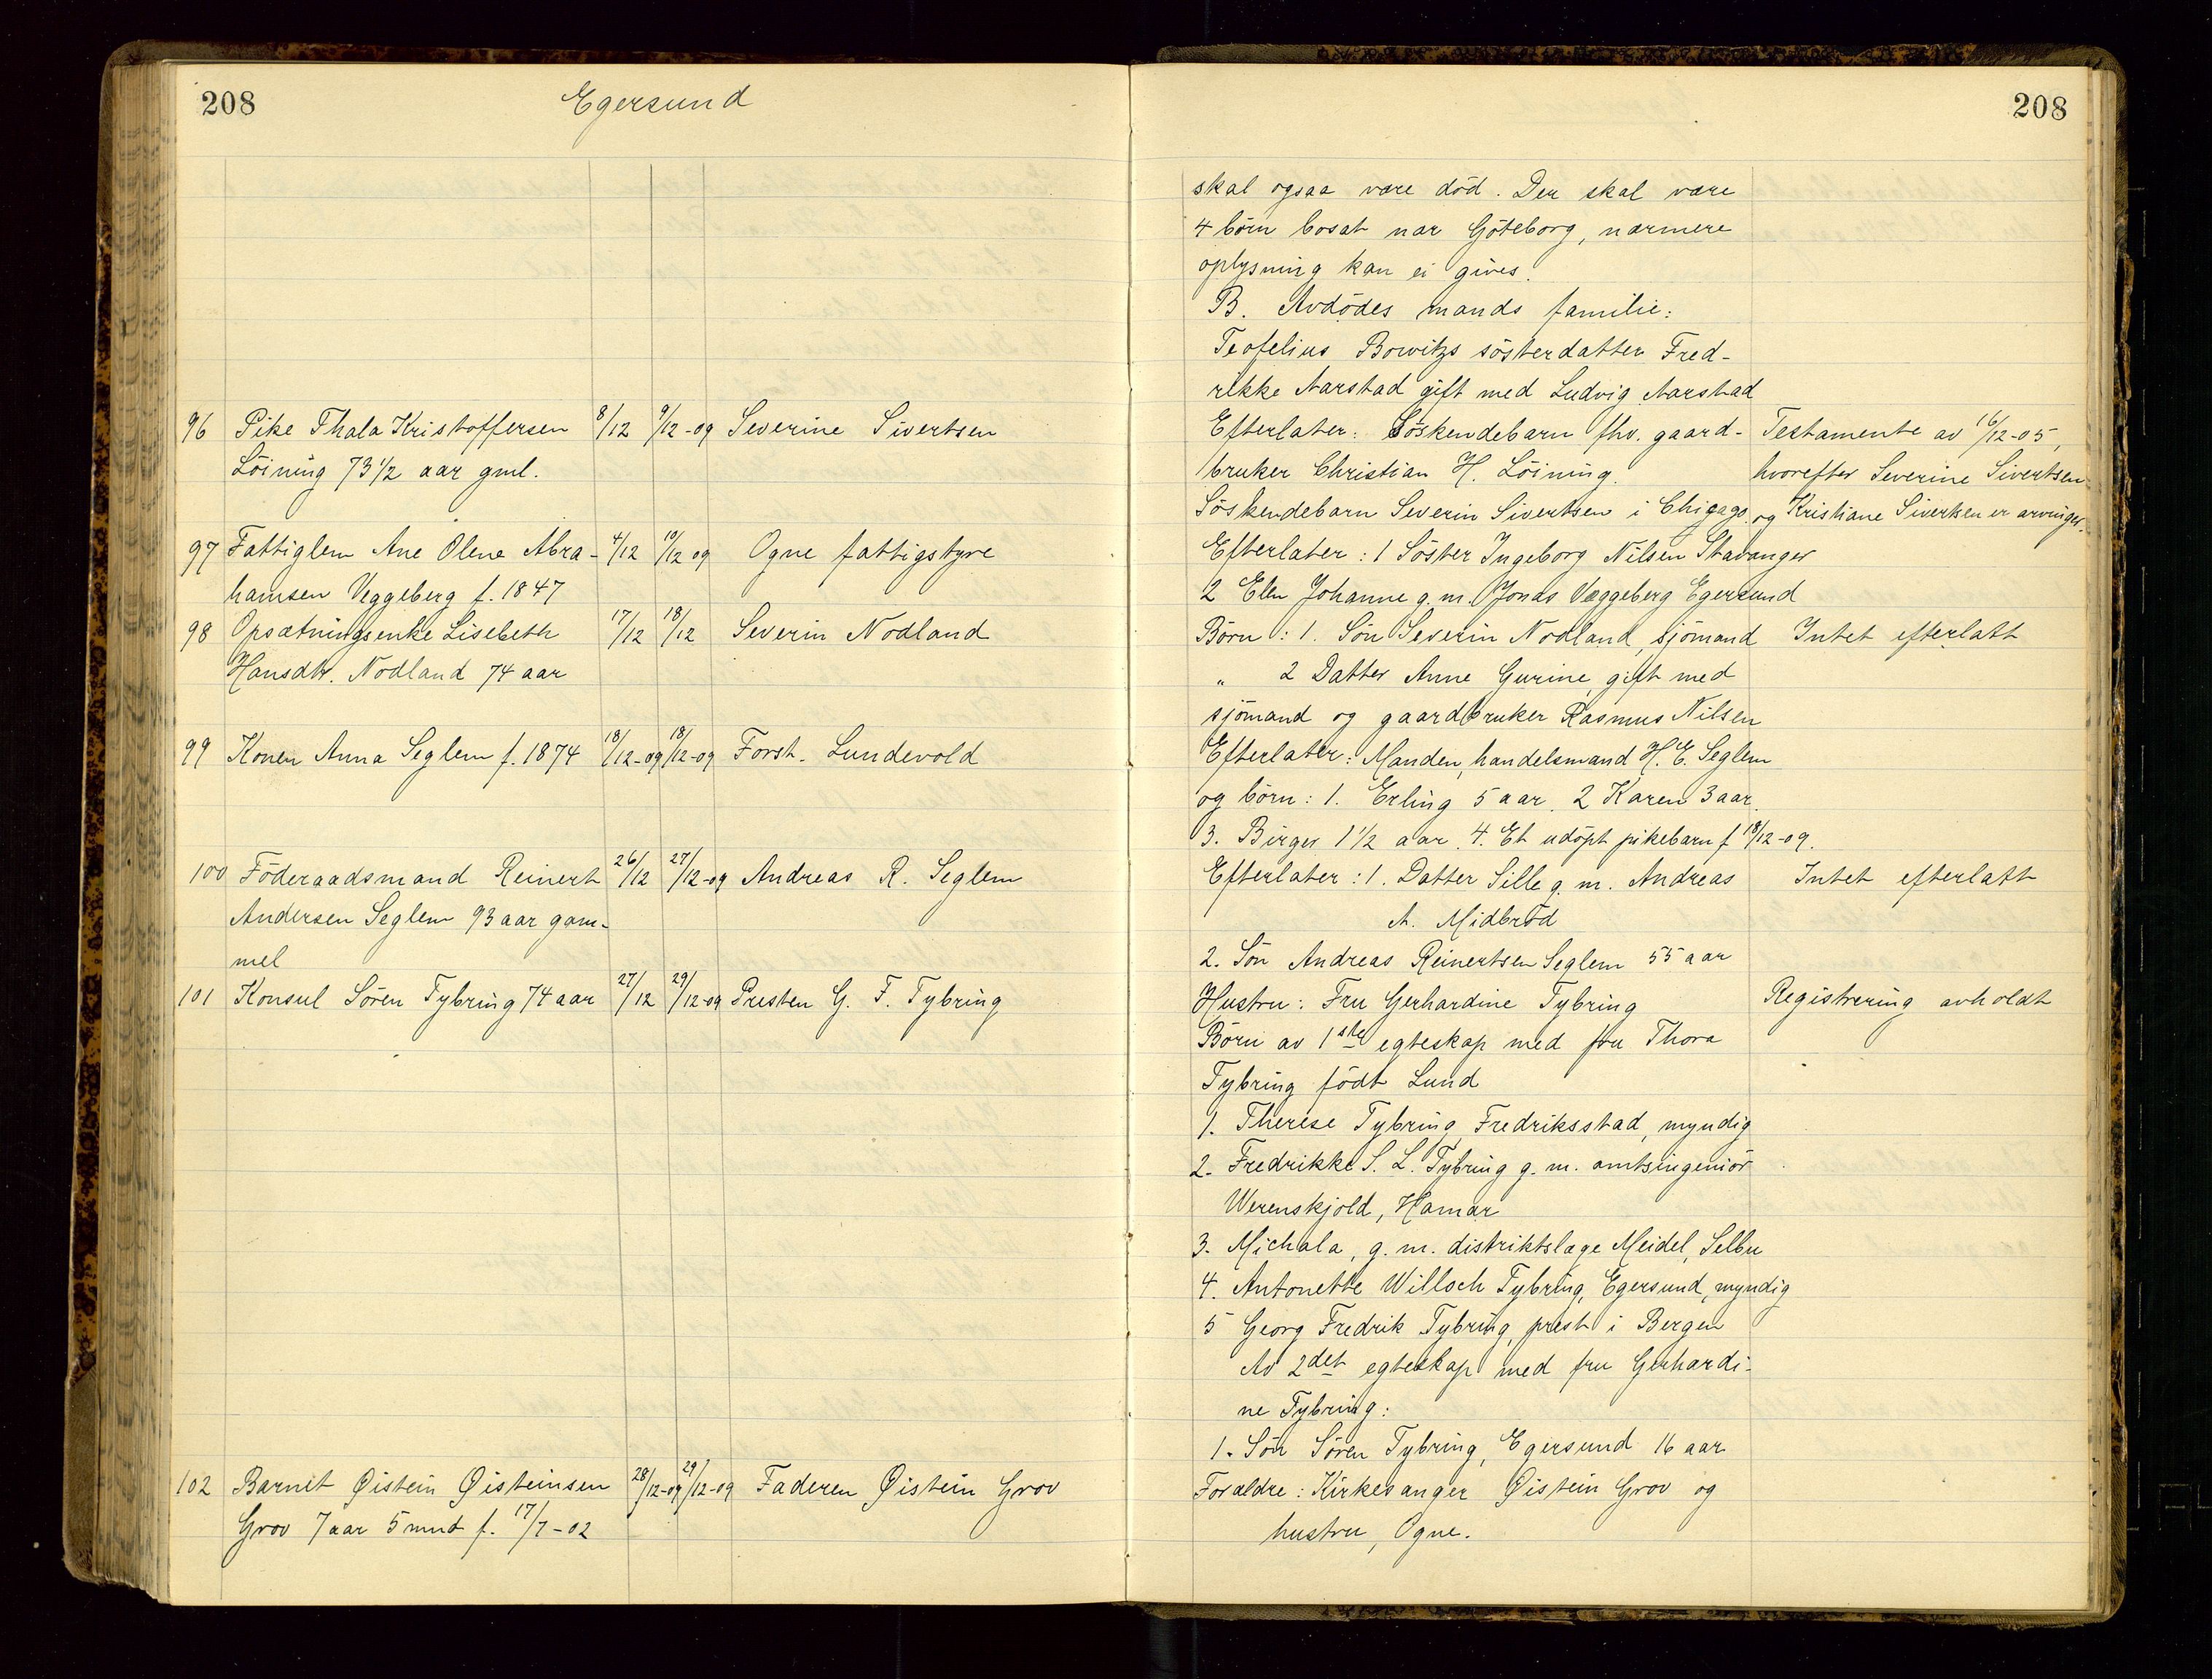 208
Egersund
208
skal ogsaa være död. Der skal være
4 börn bosat nær Göteborg, nærmere
oplysning kan ei gives.
B. Avdödes mands familie:
Teofelius Bowitzs sösterdatter Fred-
rikke Aarstad gift med Ludvig Aarstad
96 Pike Thala Kristoffersen 8/12 9/12-09 Severine Sivertsen
Löining 73 1/2 aar gml.
Efterlater: Söskendebarn fhv. gaard-
bruker Christian H. Löining.
Söskendebarn Severin Sivertsen i Chigago.
Testamente av 16/12-05,
hvorefter Severine Sivertsen
og Kristiane Sivertsen er arvinger.
97 Fattiglem Ane Olene Abra- 4/12 10/12 09 Ogne fattigstyre
hamsen Veggeberg f. 1847
Efterlater: 1 Söster Ingeborg Nilsen Stavanger
2 Elen Johanne g. m. Jonas Væggeberg Egersund
98 Opsætningsenke Lisebeth 17/12 18/12 Severin Nodland
Hansdtr. Nodland 74 aar
Börn: 1. Sön Severin Nodland, sjömand
" 2 Datter Anne Gurine, gift med
sjömand og gaardbruker Rasmus Nilsen
Intet efterlatt
99 Konen Anna Seglem f. 1874 18/12-09 18/12-09 Forst. Lundevold
Efterlater: Manden, handelsmand H. E. Seglem
og börn: 1. Erling 5 aar. 2 Karen 3 aar.
3. Birger 1 1/2 aar. 4. Et udöpt pikebarn f 18/12-09.
100 Föderaadsmand Reinert 26/12 27/12-09 Andreas R. Seglem
Andersen Seglem 93 aar gam-
mel
Efterlater: 1. Datter Sille g. m. Andreas
A. Midbröd
2. Sön Andreas Reinertsen Seglem 55 aar
Intet efterlatt
101 Konsul Sören Tybring 74 aar 27/12 29/12-09 Presten G. F. Tybring
Hustru: Fru Gerhardine Tybring
Börn av 1ste egteskap med fru Thora
Tybring födt Lund
1. Therese Tybring, Fredriksstad, myndig
2. Fredrikke S. L. Tybring g. m. amtsingeniör
Werenskjold, Hamar
3. Michala, g. m. distriktslæge Meidel, Selbu
4. Antonette Willoch Tybring, Egersund, myndig
5 Georg Fredrik Tybring, prest i Bergen
Av 2det egteskap med fru Gerhardi-
ne Tybring:
1. Sön Sören Tybring, Egersund 16 aar
Registrering avholdt
102 Barnet Øistein Øisteinsen 28/12-09 29/12-09 Faderen Øistein Grov
Grov 7 aar 5 mnd f. 17/7-02
Forældre: Kirkesanger Øistein Grov og
hustru, Ogne.